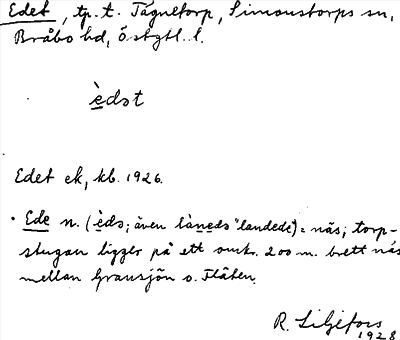 Edet, tp. t. Tågnetorp, Simonstorps sn,
Bråbo hd, Östgtl. l.
è̱dət
Edet ek, kb. 1926.
Ede n. (è̱də; även là̱ne̱də "landede") = näs; torp-
stugan ligger på ett omkr. 200 m. brett näs
mellan Gransjön o. Flåten.
R. Liljefors
1928